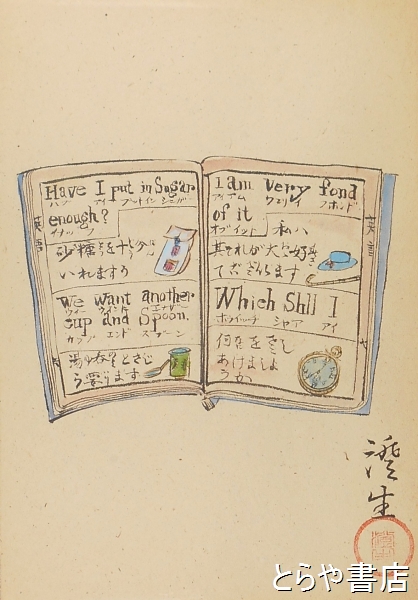 Have I put in Sugar
ハブ アイ プットイン シュガー
enough?
イナッフ
英語
砂糖を十分
いれますか
We want another
ウィー ウォント エナザー
cup and Spoon.
カップ エンド スプーン
湯のみとさじ
が要ります
I am very fond
アイアム ヴェリイ フホンド
of it
オブイット
私ハ
其それが大や好き
でございます
英語
Which Shll I
ホウィッチ シャア アイ
何をさし
あけましよ
うか
澄生
とらや書店